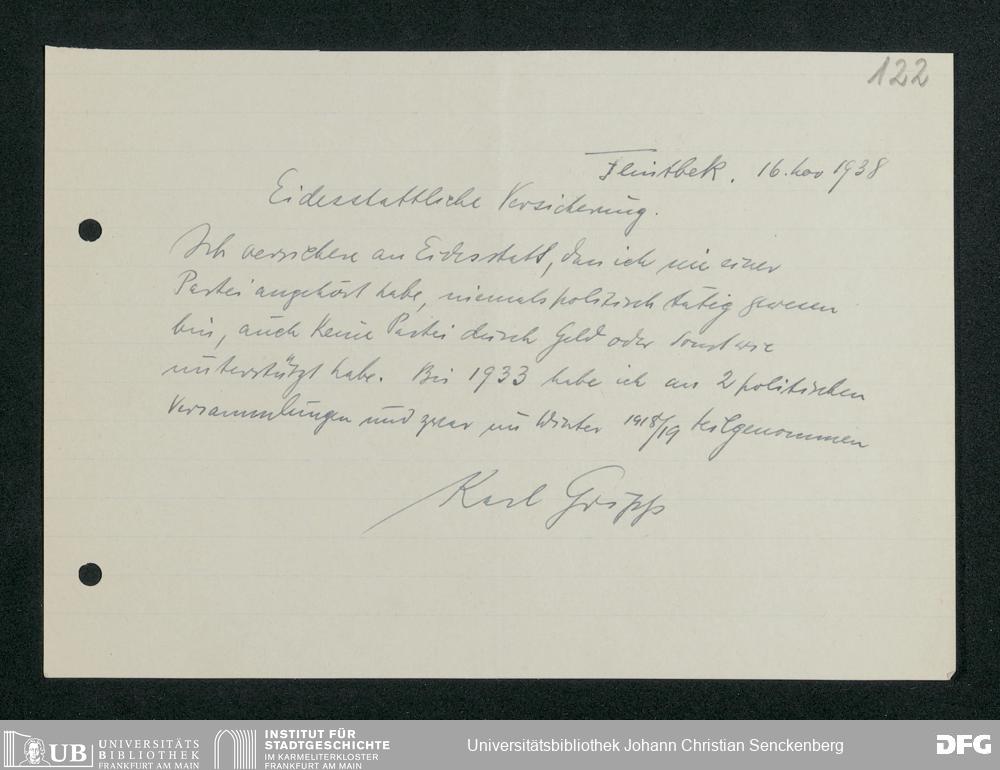 122
Flintbek, 16. Nov 1938
Eidesstattliche Versicherung.
Ich versichere an Eidesstatt, dass ich nie einer
Partei angehört habe, niemals politisch tätig gewesen
bin, auch keine Partei durch Geld oder sonst wie
unterstützt habe. Bis 1933 habe ich an 2 politischen
Versammlungen und zwar im Winter 1918/19 teilgenommen
Karl Gripp
UB UNIVERSITÄTS
BIBLIOTHEK
FRANKFURT AM MAIN
INSTITUT FÜR
STADTGESCHICHTE
IM KARMELITERKLOSTER
FRANKFURT AM MAIN
Universitätsbibliothek Johann Christian Senckenberg
DFG